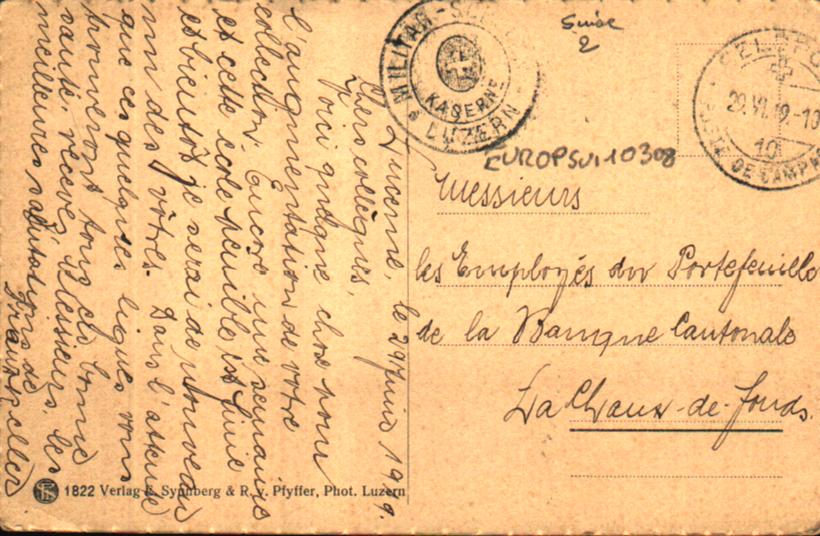 Lucerne, le 29 Juin 1919.
Chers collègues,
Voici quelque chose pour
l'augmentation de votre
collection. Encore une semaine
et cette école pénible est finie
et bientôt je serai de nouveau
un des vôtres. Dans l'attente
que ces quelques lignes vous
trouveront tous en bonne
santé, recevez, Messieurs, les
meilleures salutations de
1822 Verlag E. Synnberg & R. v. Pfyffer, Phot. Luzern
MILITÄR
KASERNE
LUZERN
Suisse
2
29.VI.19.-10
10
POSTE DE CAMPAGNE
EUROPSUI10308
Messieurs
les Employés du Portefeuille
de la Banque Cantonale
La Chaux-de-fonds.